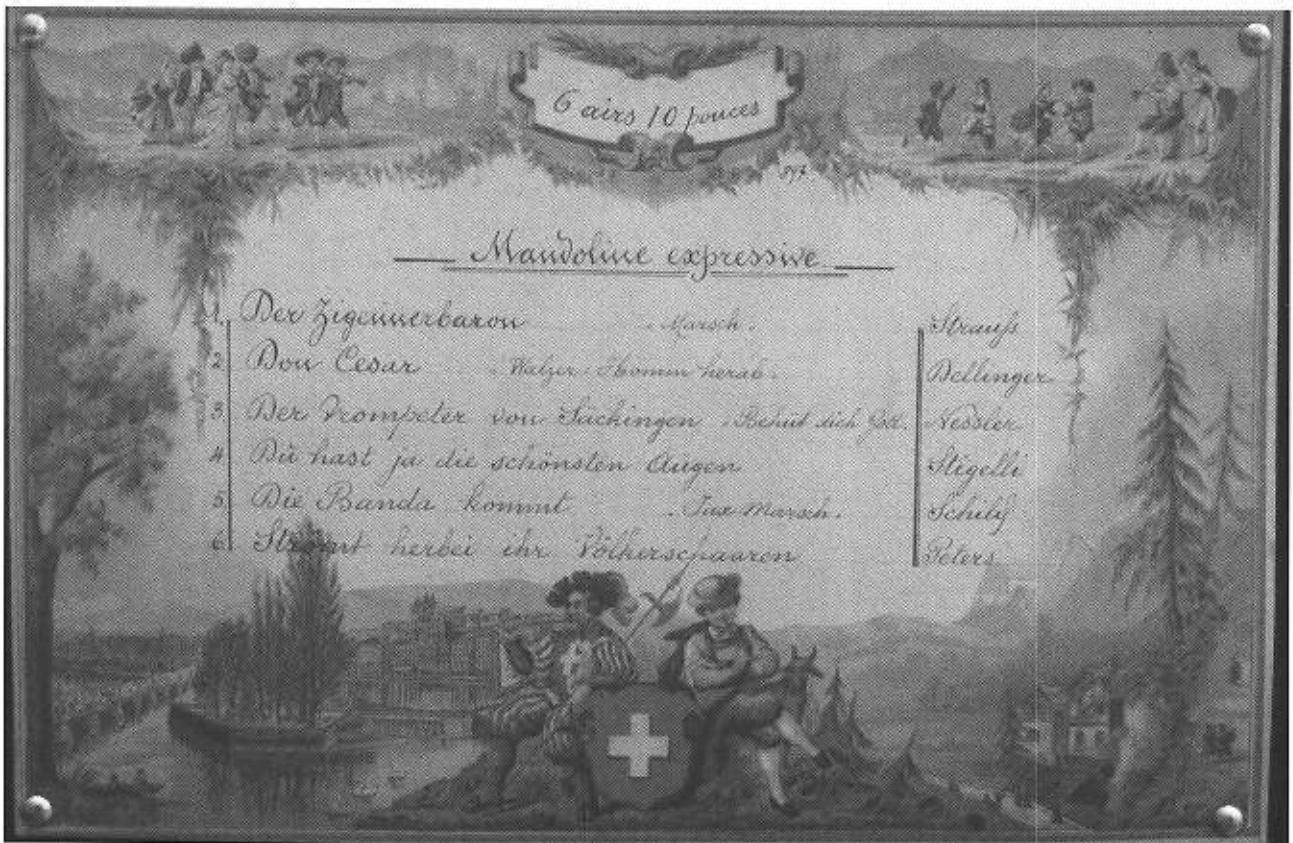 6 airs 10 pouces
Mandoline expressive
1. Der Zigeunerbaron . Marsch. Strauß
2. Don Cesar . Walzer Komm herab. Dellinger
3. Der Trompeter von Säckingen . Behüt dich Gott. Nessler
4. Du hast ja die schönsten Augen Stigelli
5. Die Banda kommt . Marsch. Schild
6. Strömt herbei ihr Völkerschaaren Peters